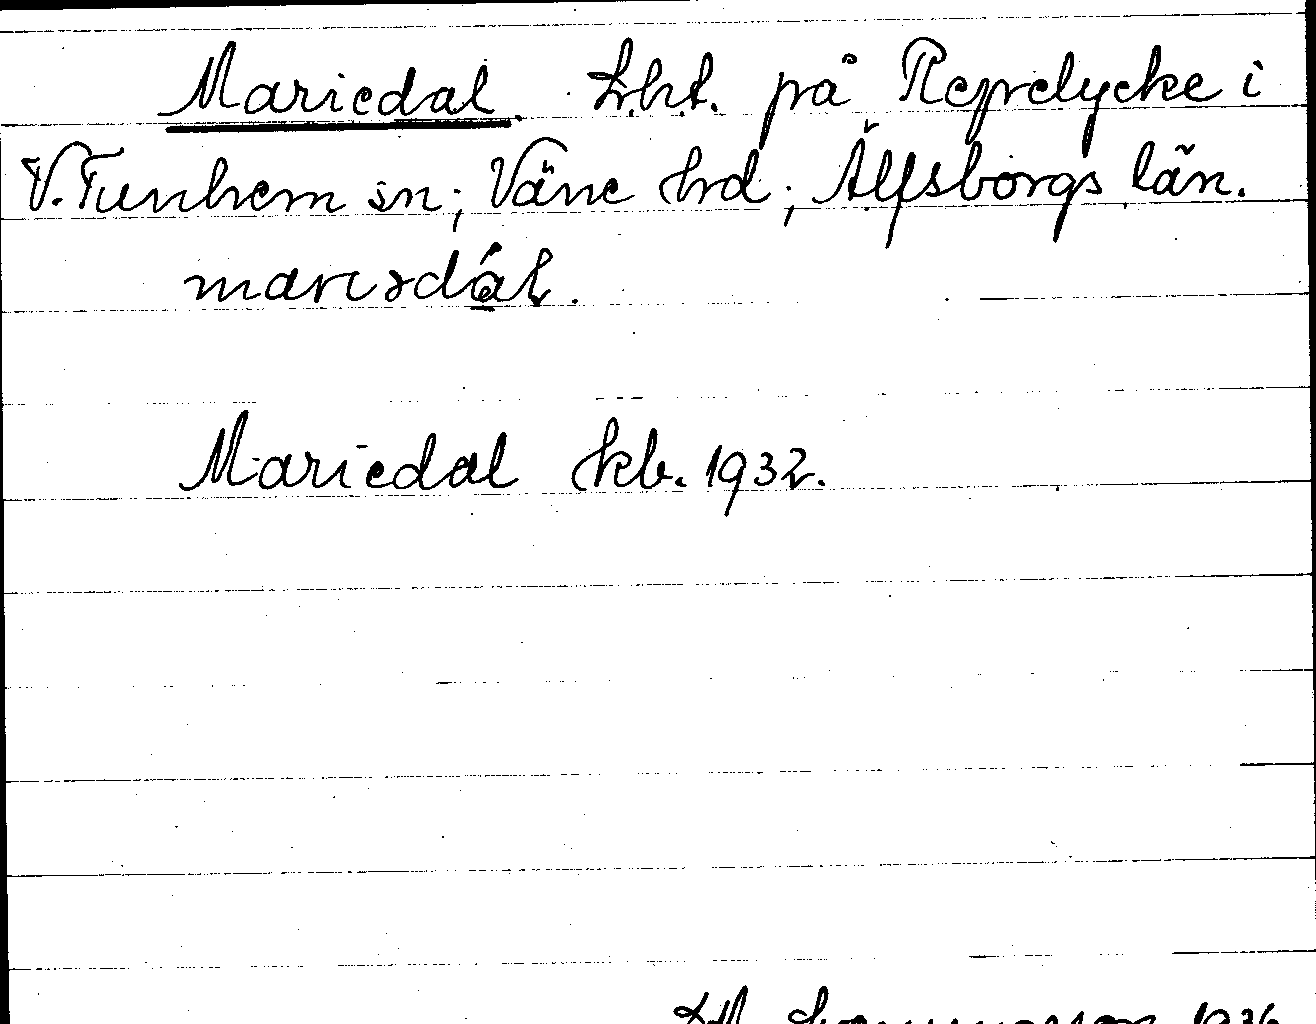 Mariedal. Lht. på Repelycke i
V. Tunhem sn; Väne hd; Älfsborgs län.
Mariedal kb. 1932.
1936